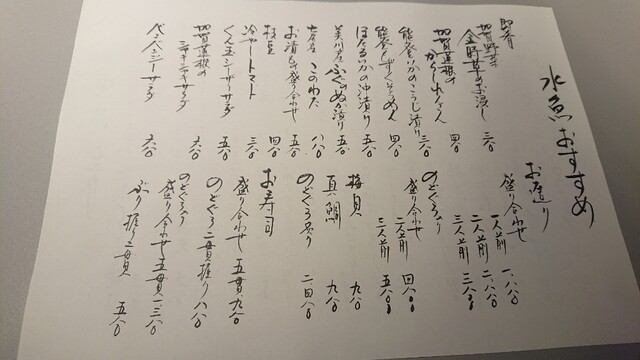 水魚おすすめ
お造り
盛り合わせ
一人前 一、八〇〇
二人前 二、八〇〇
三人前 三、八〇〇
のどぐろ入り
盛り合わせ
二人前 四八〇〇
三人前 五八〇〇
梅貝 九八〇
真鯛 九八〇
のどぐろ炙り 二四八〇
お寿司
盛り合わせ 五貫 九八〇
のどぐろ二貫握り 八八〇
のどぐろ入り
盛り合わせ五貫 一、三八〇
ぶり握り二貫 五八〇
即肴
加賀野菜
金時草のお浸し 三八〇
加賀蓮根の
からしれんこん 四八〇
能登いかのこうじ漬け 三八〇
能登もずくそうめん 四八〇
ほたるいかの沖漬け 五八〇
美川産ふぐのぬか漬け 五八〇
七尾産 このわた 八八〇
お漬もの盛り合わせ 五八〇
枝豆 四八〇
冷やしトマト 三八〇
くん玉シーザーサラダ 五八〇
加賀蓮根の
シャキシャキサラダ 六八〇